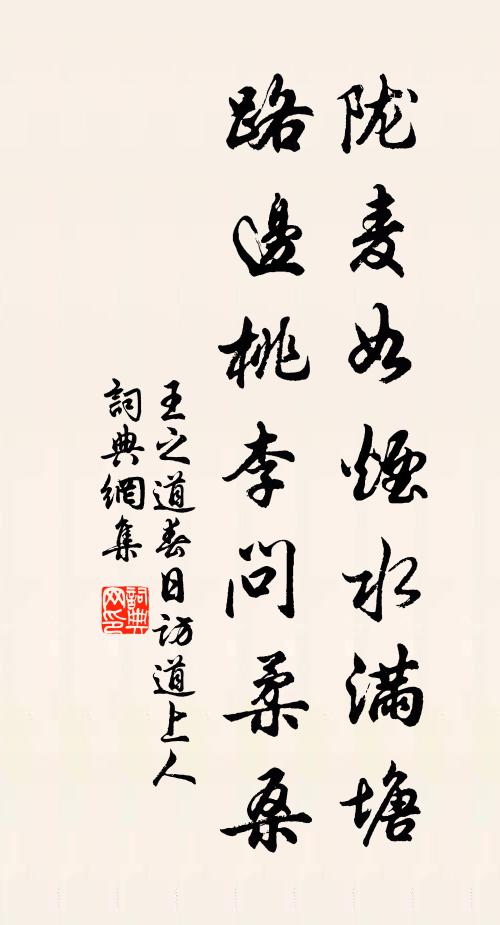 陇麦如烟水满塘
路邊桃李問柔桑
王之道春日访道上人
詞典網集
詞典网印